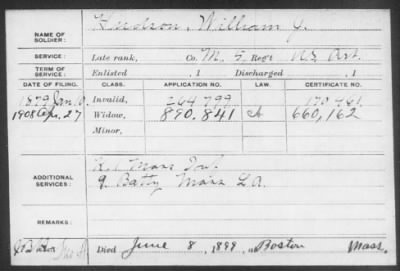 NAME OF SOLDIER: Hudson, William J.
SERVICE: Late rank, Co. M, 5 Reg't U.S. Art.
TERM OF SERVICE: Enlisted , 1 Discharged , 1
DATE OF FILING. CLASS. APPLICATION NO. LAW. CERTIFICATE NO.
1879 Jan. Invalid, 264.799
1908 Widow, 890.841 660,162
Minor,
ADDITIONAL SERVICES: Mass
9 Batty Mass L.A.
REMARKS:
Died June 8, 1899, at Boston Mass.